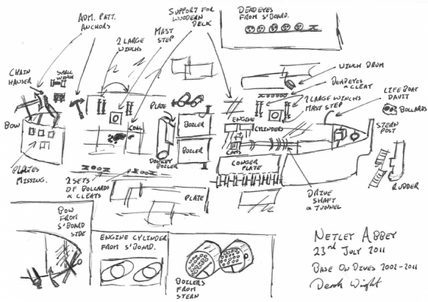 ADM. PATT.
ANCHORS
SUPPORT FOR
WOODEN
DECK
MAST
STEP
2 LARGE
WINCHS
DEADEYES
FROM S'BOARD.
CHAIN
HANGER
SMALL
WINCH
BOW
PLATE
COAL
BOILER
BOILER
DONKEY
BOILER
ENGINE
CYLINDERS
WINCH DRUM
DEADEYES
& CLEAT
2 LARGE WINCHS
MAST STEP
LIFE BOAT
DAVIT
BOLLARDS
STERN
POST
RUDDER
PLATES
MISSING.
2 SETS
OF BOLLARDS
& CLEATS
PLATE
CONGER
PLATE
DRIVE
SHAFT
& TUNNEL
BOW
FROM
S'BOARD
SIDE
ENGINE CYLINDER
FROM S'BOARD.
BOILERS
FROM
STERN
NETLEY ABBEY
23rd JULY 2011
BASE ON DIVES 2001-2011
Derek Wright